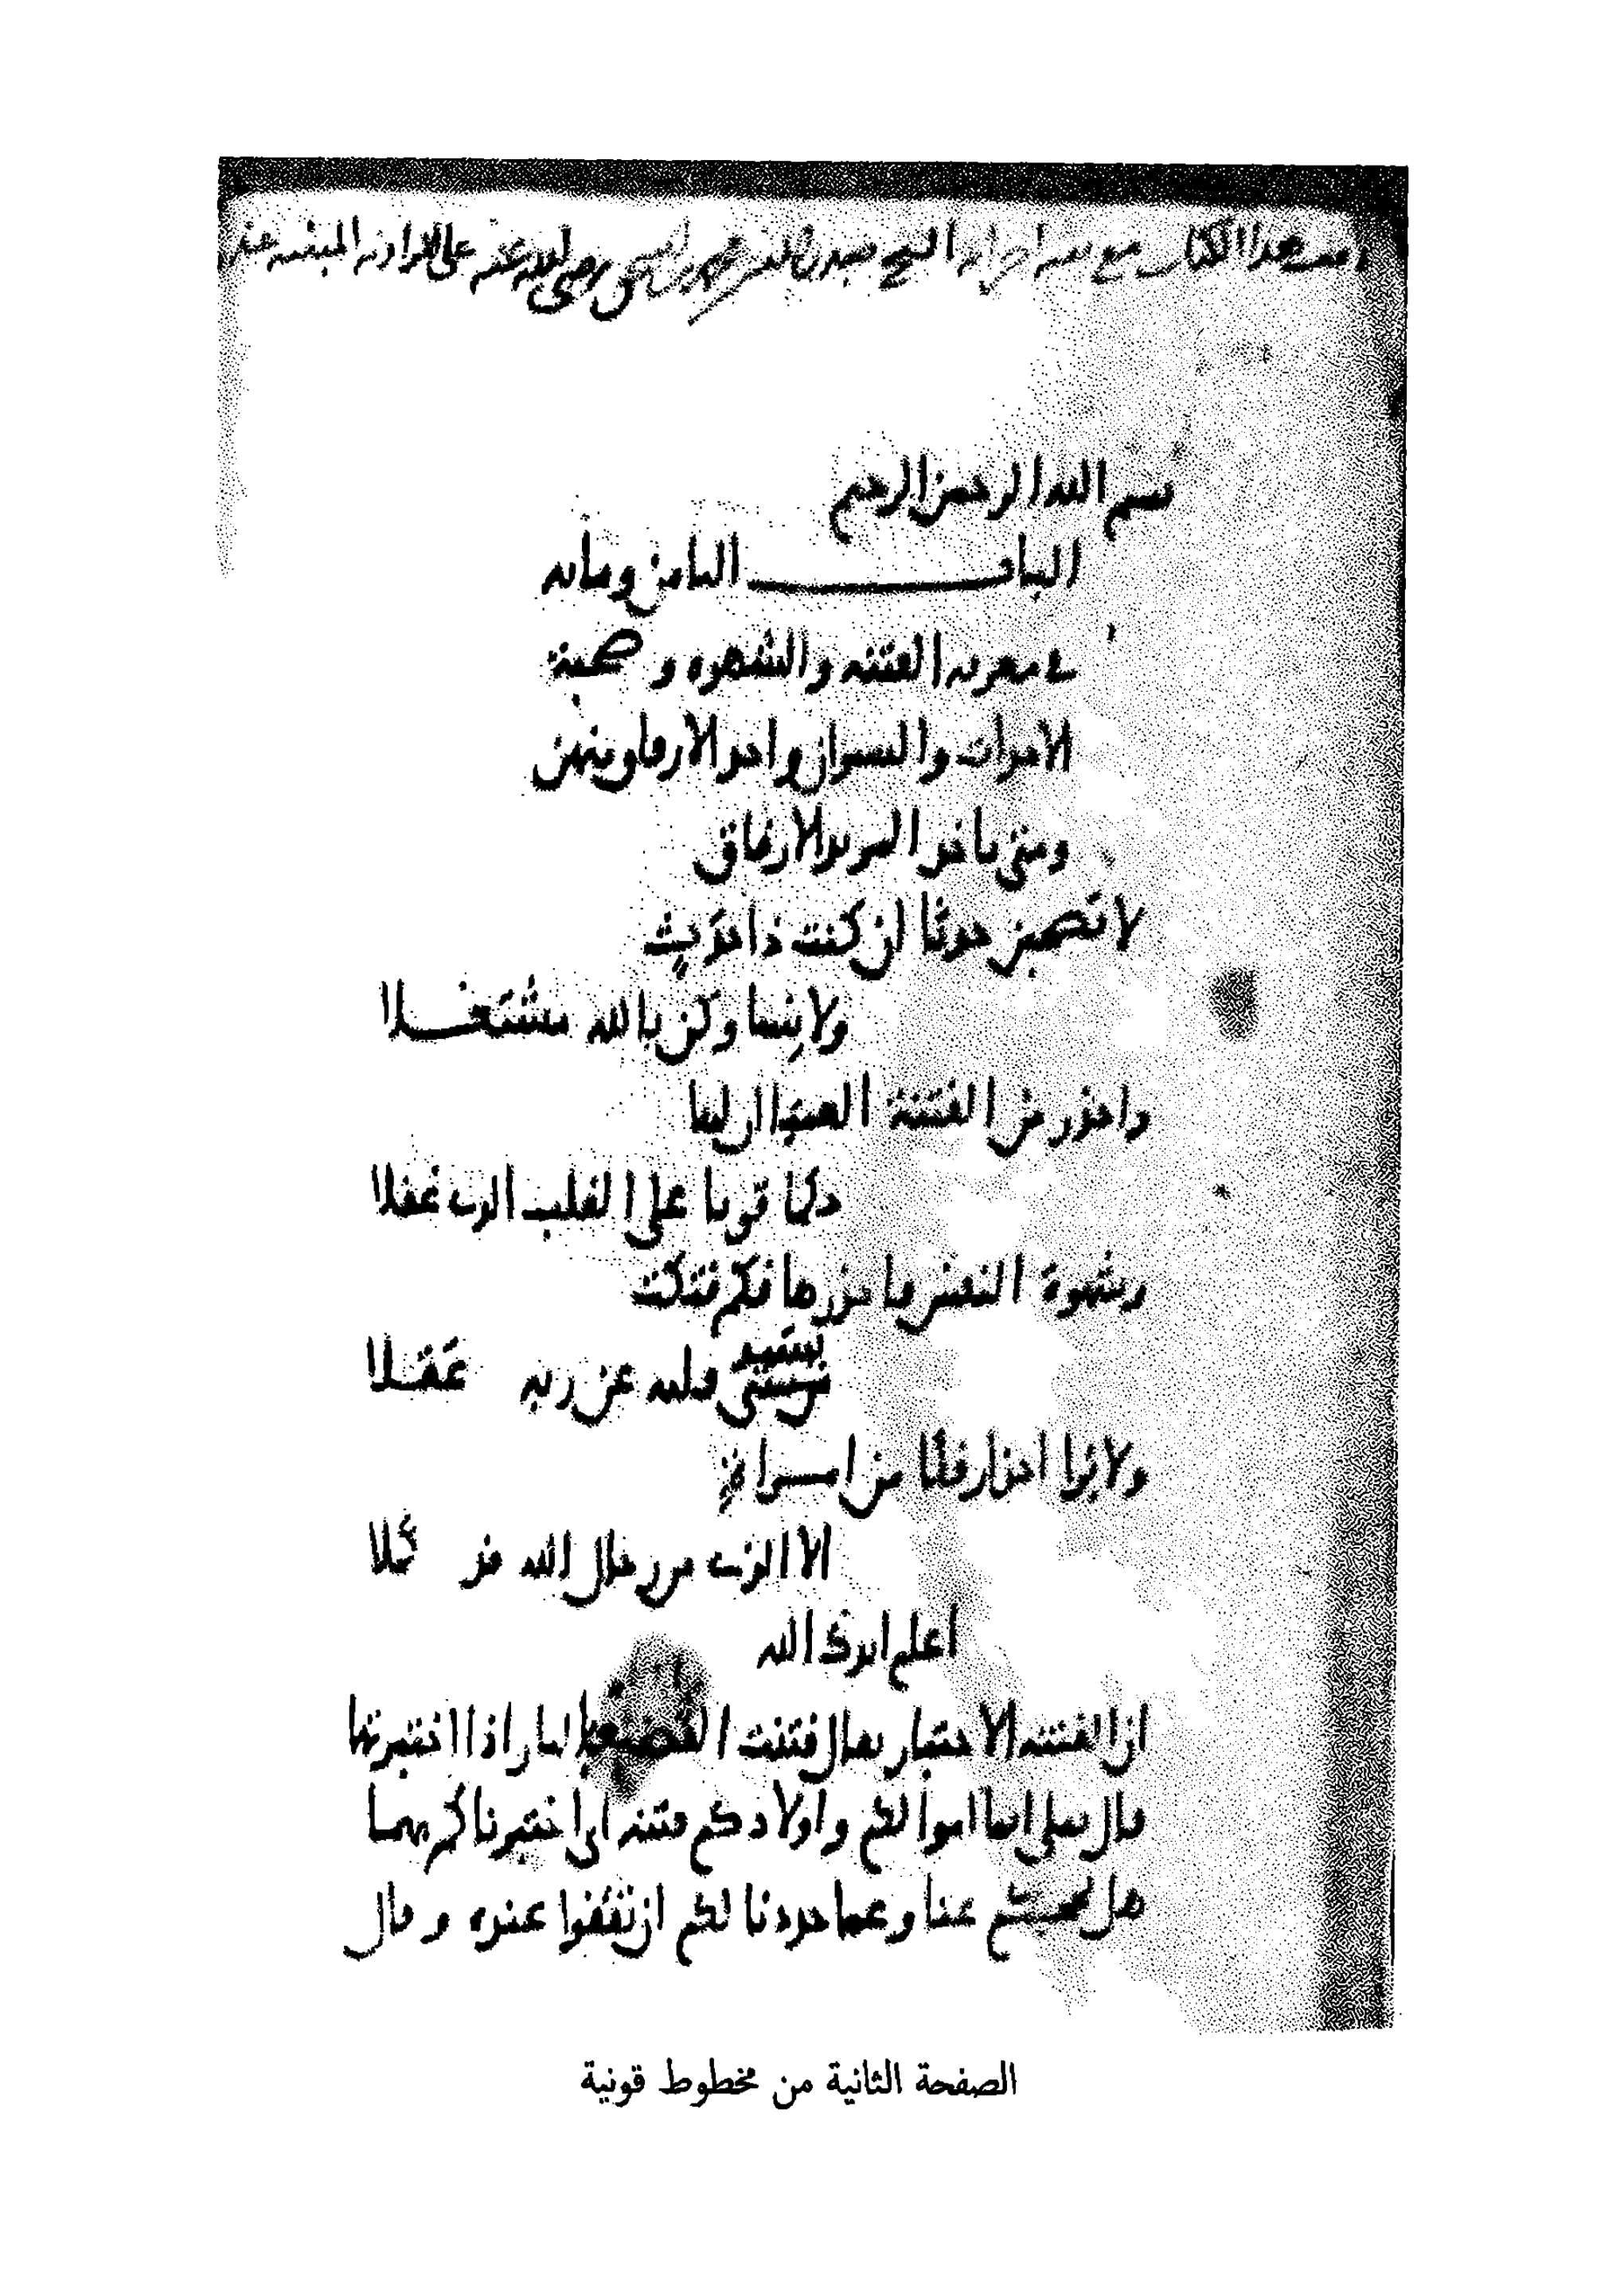 وقف هذا الكتاب مع تسعة اجزائه الشيخ صدر الدين محمد بن اسحق رضي الله عنه على الزاوية المبنية عند
بسم الله الرحمن الرحيم
الباب الثامن ومائة
في معرفة الفتنة والشهوة وصحبة
الاحداث والنسوان واخذ الارفاق منهن
ومتى ياخذ المريد الارفاق
لا تصحبن حدثا ان كنت ذا حدث
ولا نسا وكن بالله مشتغلا
واحذر من الفتنة العميا ان لها
حكما قويا على القلب الذي غفلا
وشهوة النفس فاحذرها فكم فتكت
بسيد قلبه عن ربه عقلا
ولا ترا آخذا رفقا من امراة
الا الذي من رجال الله قد كملا
اعلم ايدك الله
ان الفتنة الاختبار يقال فتنت الفضة بالنار اذا اختبرتها
قال تعلى انما اموالكم واولادكم فتنة اي اختبرناكم بهما
هل تحجبكم عنا وعما حددنا لكم ان تقفوا عنده وقال
الصفحة الثانية من مخطوط قونية